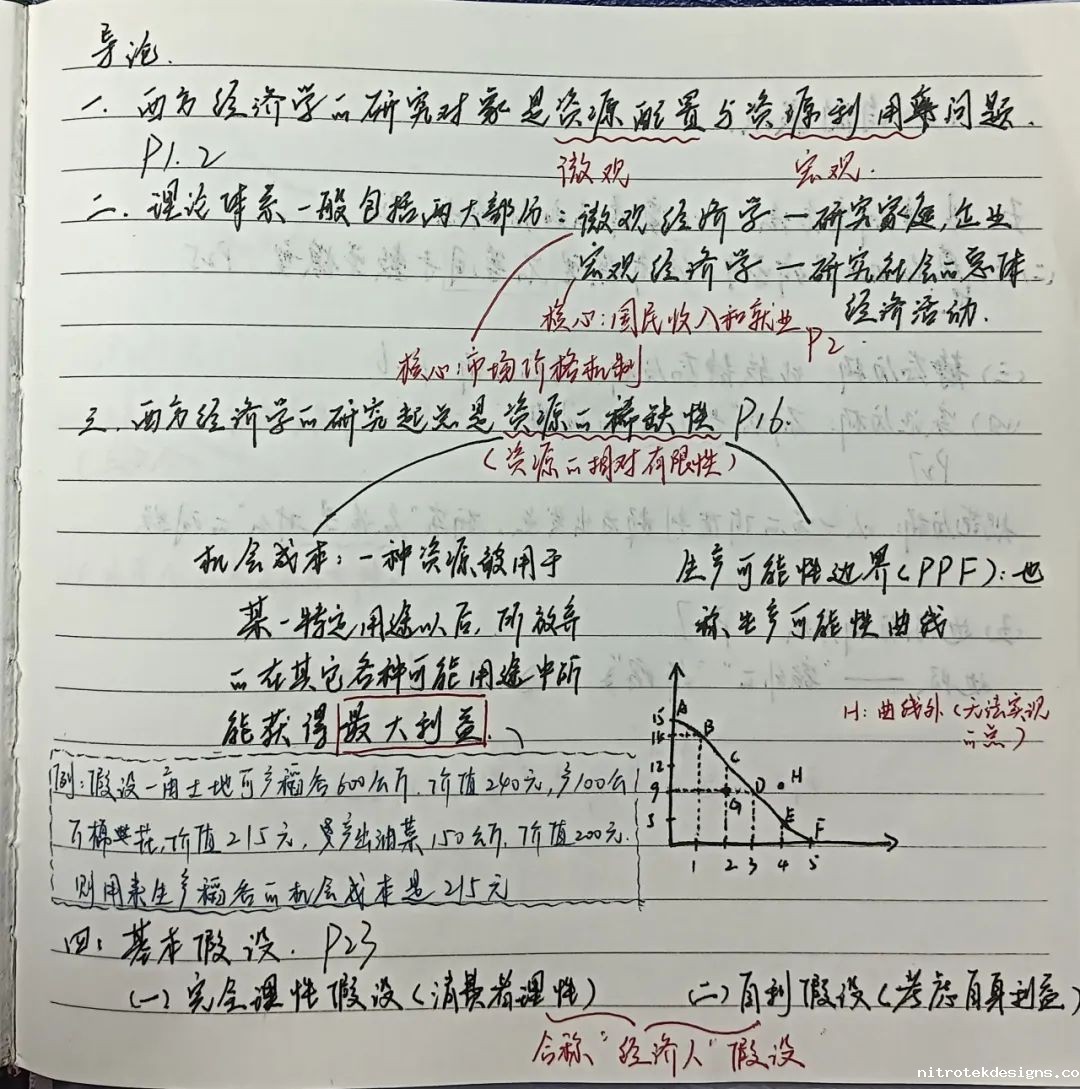 导论.
一. 西方经济学的研究对象是资源配置与资源利用率问题.
P1.2 微观 宏观.
二. 理论体系一般包括两大部分：微观经济学—研究家庭,企业
宏观经济学—研究社会的总体
经济活动.
核心：国民收入和就业 P2
核心：市场价格机制
三. 西方经济学的研究起点是资源的稀缺性 P16.
(资源的相对有限性)
机会成本：一种资源被用于
某一特定用途以后，所放弃
的在其它各种可能用途中所
能获得最大利益.
生产可能性边界(PPF)：也
称生产可能性曲线
H：曲线外(无法实现
的点)
A
15
B
14
C
12
D
H
9
G
E
5
F
1 2 3 4 5
例：假设一亩土地可产稻谷600公斤.价值240元,产100公
斤棉花,价值215元,产出油菜150公斤,价值200元.
则用来生产稻谷的机会成本是215元
四：基本假设. P23
(一)完全理性假设(消费者理性) (二)自利假设(考虑自身利益)
合称"经济人"假设
nitrotekdesigns.co